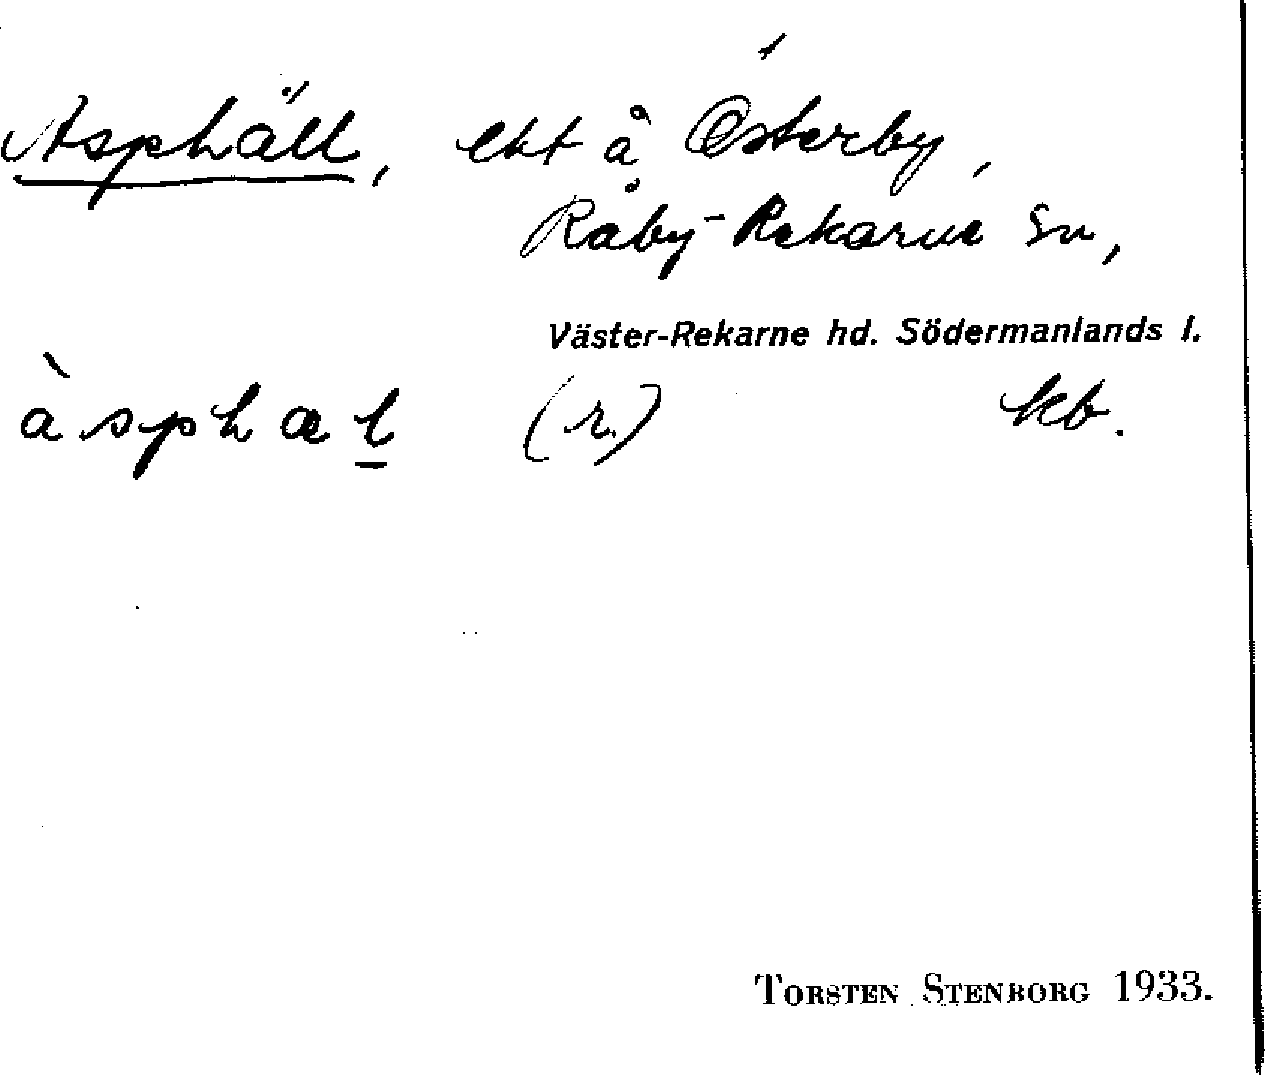 Asphäll, ekt å Österby,
Råby-Rekarne sn,
Väster-Rekarne hd. Södermanlands l.
àsphæl (r.) kb.
TORSTEN STENBORG 1933.